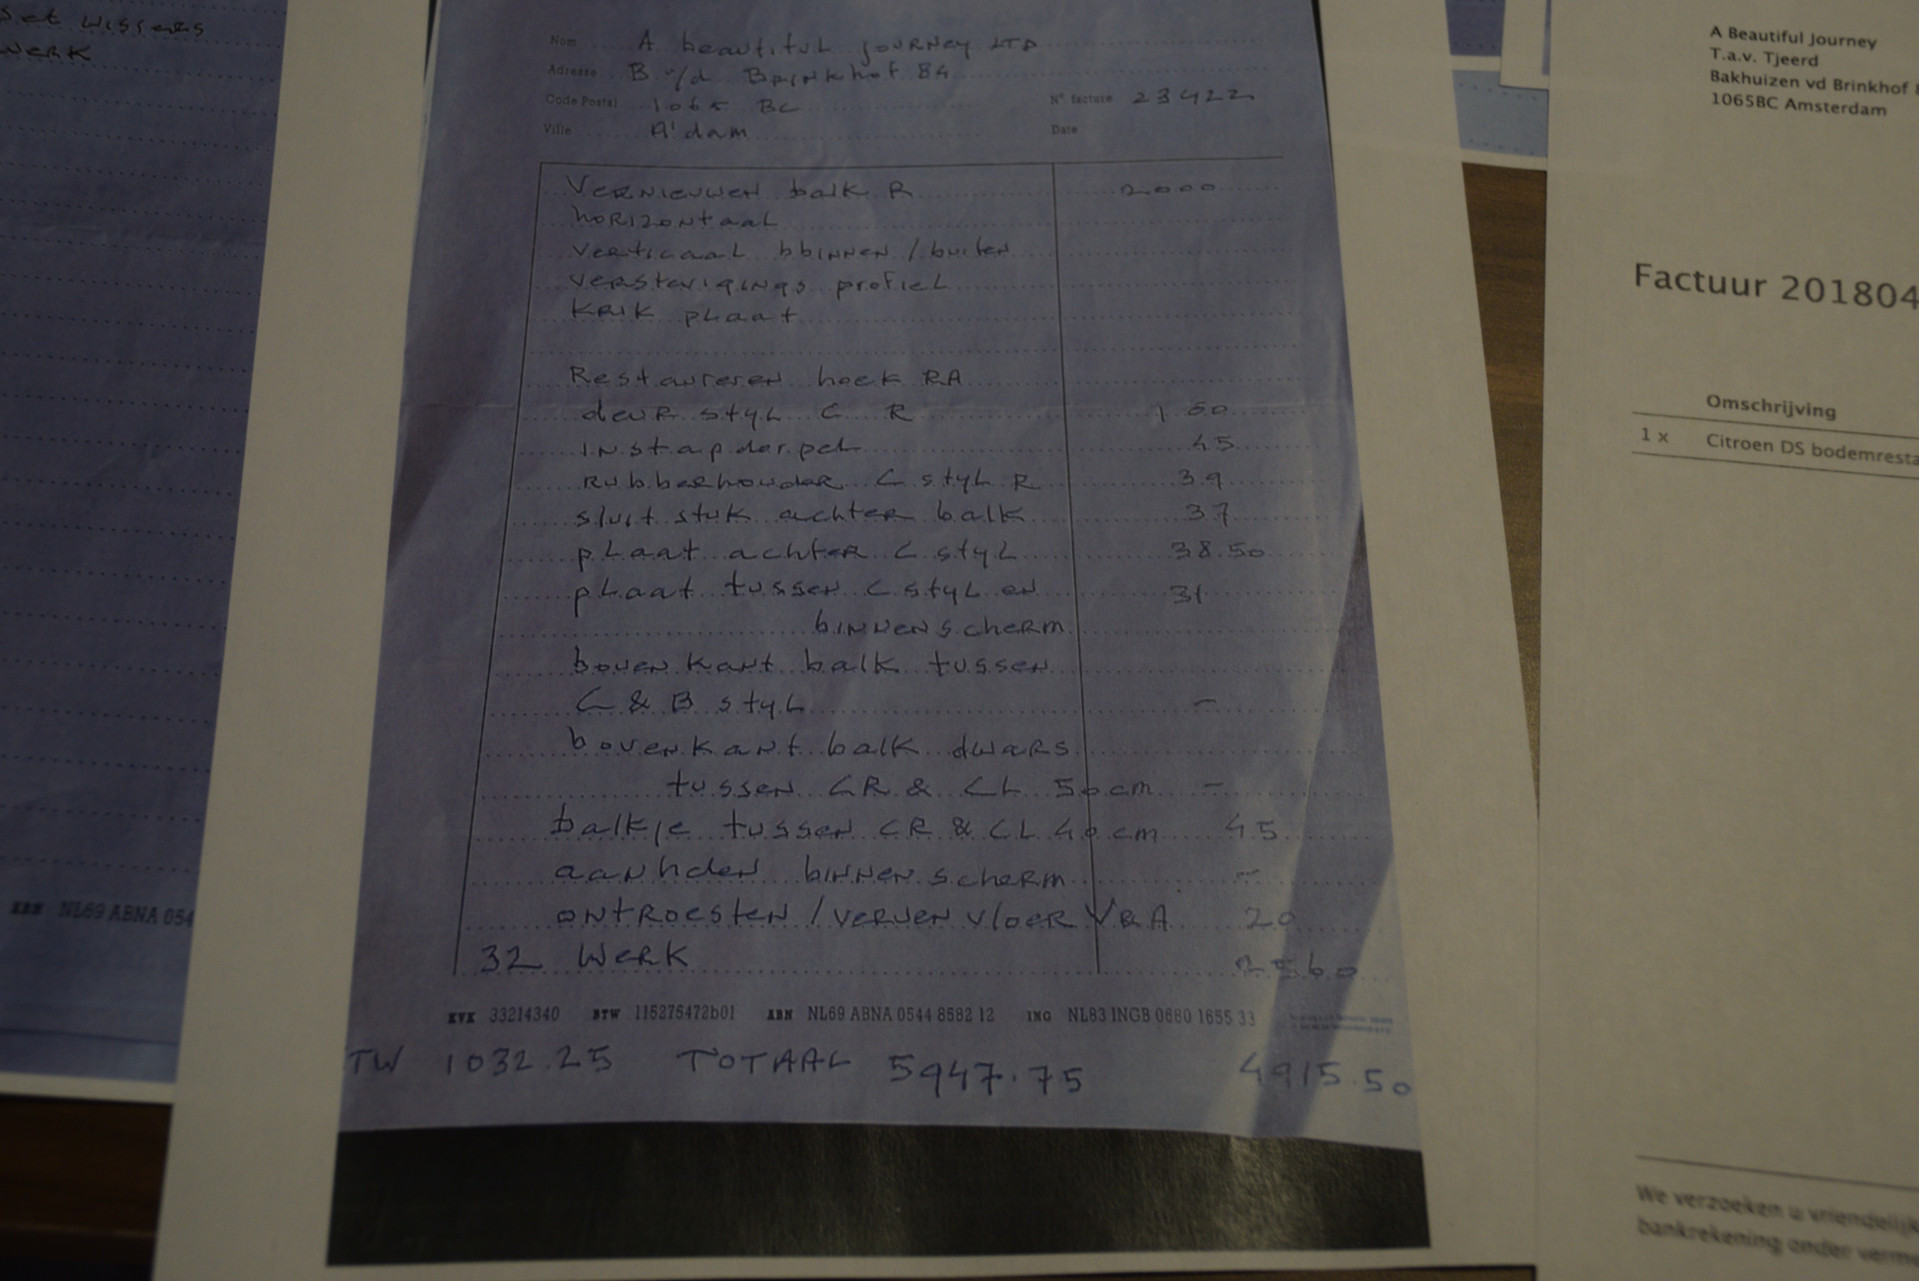 set wissers
werk
ABN NL69 ABNA 054
Nom A beautiful journey LTD
Adresse B v/d Brinkhof 84
Code Postal 1065 BC
N° facture 23422
Ville A'dam
Date
Vernieuwen balk R 2000
horizontaal
verticaal bbinnen / buiten
verstevigings profiel
krik plaat
Restaureren hoek RA
deur styl C R 150
instapdorpel 45
Rubberhouder C styl R 39
sluit stuk achter balk 37
plaat achter C styl 38.50
plaat tussen C styl en 31
binnenscherm
bovenkant balk tussen
C & B styl -
bovenkant balk dwars
tussen CR & CL 50 cm -
balkje tussen CR & CL 40 cm 45
aanhelen binnenscherm -
ontroesten / verven vloer V&A 20
32 werk 2560
KVK 33214340 BTW 115275472b01 ABN NL69 ABNA 0544 8582 12 ING NL83 INGB 0680 1655 33
TW 1032.25 TOTAAL 5947.75 4915.50
A Beautiful Journey
T.a.v. Tjeerd
Bakhuizen vd Brinkhof 8
1065BC Amsterdam
Factuur 201804
Omschrijving
1 x Citroen DS bodemresta
We verzoeken u vriendelijk
bankrekening onder verme